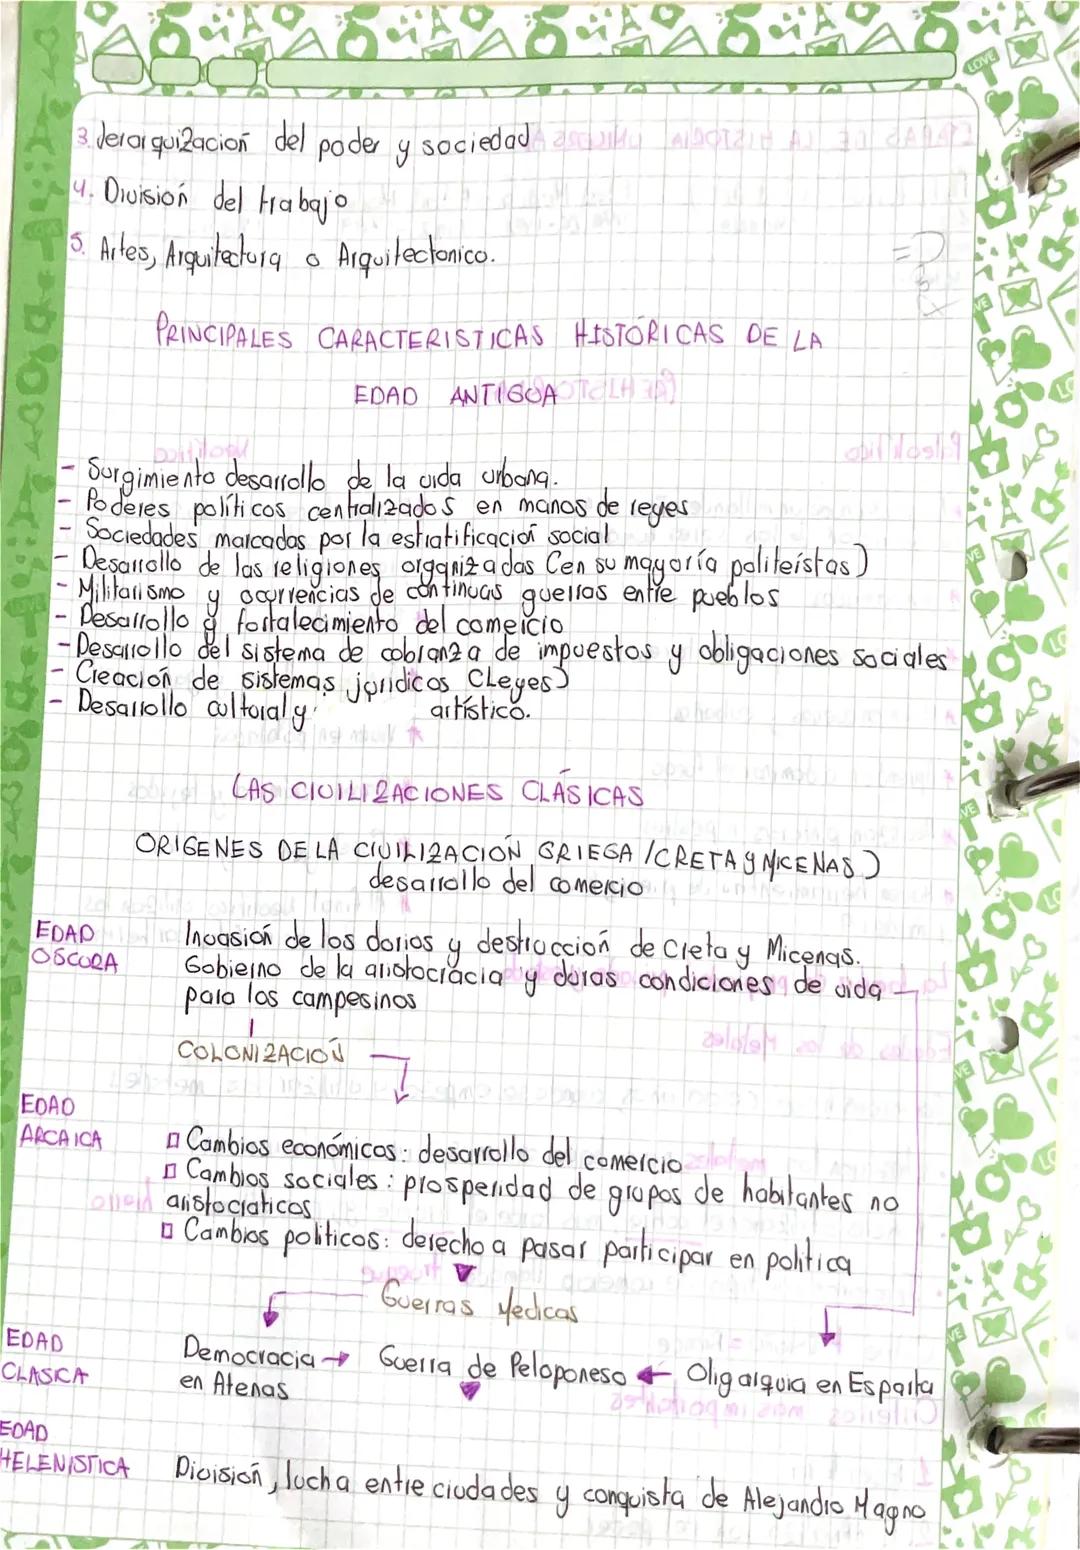 3. Jerarquización del poder y sociedad
4. División del trabajo
5. Artes, Arquitectura o Arquitectonico.
PRINCIPALES CARACTERISTICAS HISTÓRICAS DE LA
EDAD ANTIGUA
- Surgimiento desarrollo de la vida urbana.
- Poderes políticos centralizados en manos de reyes
- Sociedades marcadas por la estratificación social
- Desarrollo de las religiones organizadas (en su mayoría politeístas)
- Militarismo y ocurrencias de continuas guerras entre pueblos
- Desarrollo y fortalecimiento del comercio
- Desarrollo del sistema de cobranza de impuestos y obligaciones sociales
- Creación de sistemas jurídicos (Leyes)
- Desarrollo cultural y artístico.
LAS CIVILIZACIONES CLÁSICAS
ORIGENES DE LA CIVILIZACIÓN GRIEGA (CRETA y MICENAS)
desarrollo del comercio
EDAD
OSCURA
Invasión de los dorios y destrucción de Creta y Micenas.
Gobierno de la aristocracia y duras condiciones de vida
para los campesinos
COLONIZACIÓN
EDAD
ARCAICA
Cambios económicos: desarrollo del comercio
Cambios sociales: prosperidad de grupos de habitantes no
aristocraticos
Cambios politicos: derecho a pasar participar en politica
Guerras Medicas
EDAD
CLASICA
Democracia → Guerra de Peloponeso ← Oligarquia en Esparta
en Atenas
EDAD
HELENISTICA
División, lucha entre ciudades y conquista de Alejandro Magno